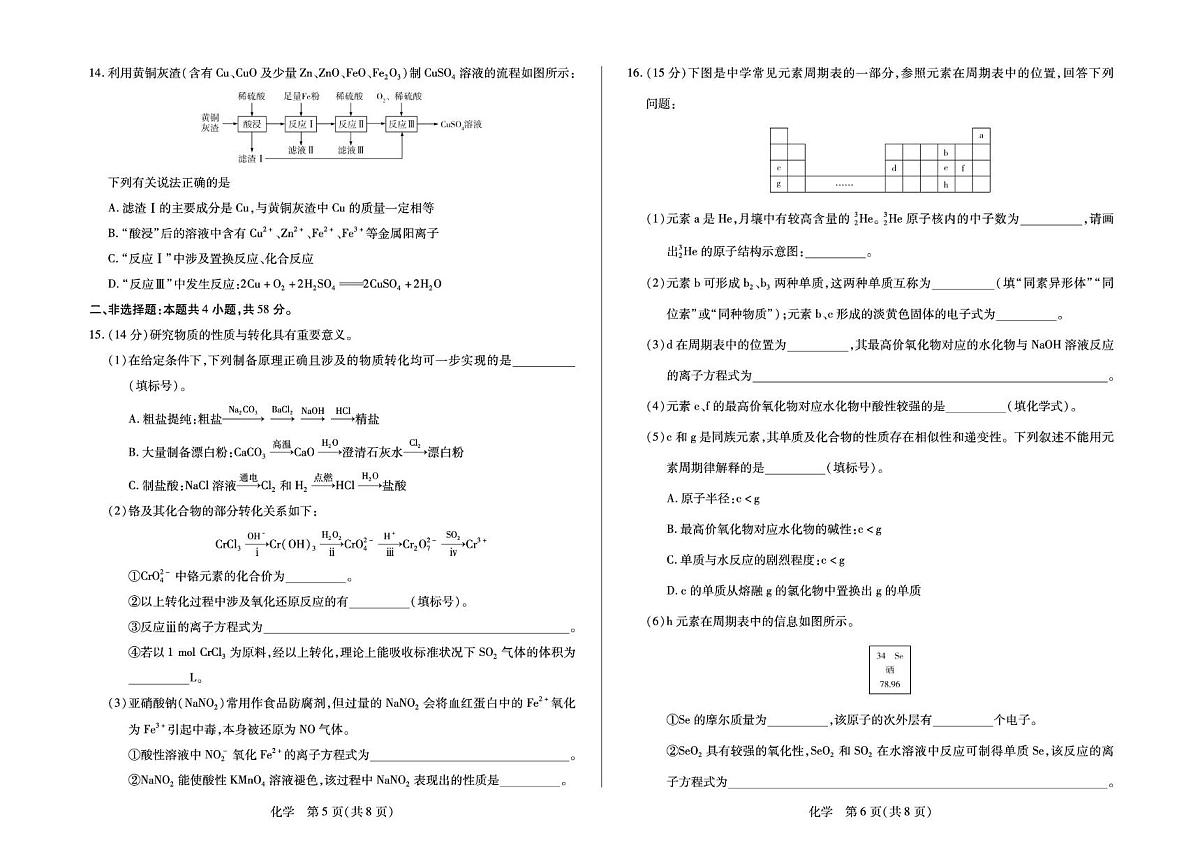 14. 利用黄铜灰渣(含有 Cu、CuO 及少量 Zn、ZnO、FeO、Fe₂O₃)制 CuSO₄ 溶液的流程如图所示:
稀硫酸 足量Fe粉 稀硫酸 O₂、稀硫酸
黄铜灰渣 酸浸 反应Ⅰ 反应Ⅱ 反应Ⅲ CuSO₄溶液
滤渣Ⅰ 滤液Ⅱ 滤液Ⅲ
下列有关说法正确的是
A. 滤渣Ⅰ的主要成分是 Cu,与黄铜灰渣中 Cu 的质量一定相等
B. “酸浸”后的溶液中含有 Cu²⁺、Zn²⁺、Fe²⁺、Fe³⁺等金属阳离子
C. “反应Ⅰ”中涉及置换反应、化合反应
D. “反应Ⅲ”中发生反应:2Cu + O₂ + 2H₂SO₄ ══ 2CuSO₄ + 2H₂O
二、非选择题:本题共 4 小题,共 58 分。
15. (14 分)研究物质的性质与转化具有重要意义。
(1)在给定条件下,下列制备原理正确且涉及的物质转化均可一步实现的是__________
(填标号)。
A. 粗盐提纯:粗盐 —Na₂CO₃→ —BaCl₂→ —NaOH→ —HCl→ 精盐
B. 大量制备漂白粉:CaCO₃ —高温→ CaO —H₂O→ 澄清石灰水 —Cl₂→ 漂白粉
C. 制盐酸:NaCl 溶液 —通电→ Cl₂ 和 H₂ —点燃→ HCl —H₂O→ 盐酸
(2)铬及其化合物的部分转化关系如下:
CrCl₃ —OH⁻/ⅰ→ Cr(OH)₃ —H₂O₂/ⅱ→ CrO₄²⁻ —H⁺/ⅲ→ Cr₂O₇²⁻ —SO₂/ⅳ→ Cr³⁺
①CrO₄²⁻ 中铬元素的化合价为__________。
②以上转化过程中涉及氧化还原反应的有__________(填标号)。
③反应ⅲ的离子方程式为__________。
④若以 1 mol CrCl₃ 为原料,经以上转化,理论上能吸收标准状况下 SO₂ 气体的体积为
__________L。
(3)亚硝酸钠(NaNO₂)常用作食品防腐剂,但过量的 NaNO₂ 会将血红蛋白中的 Fe²⁺氧化
为 Fe³⁺引起中毒,本身被还原为 NO 气体。
①酸性溶液中 NO₂⁻ 氧化 Fe²⁺的离子方程式为__________。
②NaNO₂ 能使酸性 KMnO₄ 溶液褪色,该过程中 NaNO₂ 表现出的性质是__________。
化学 第 5 页(共 8 页)
16. (15 分)下图是中学常见元素周期表的一部分,参照元素在周期表中的位置,回答下列
问题:
a
b
c d e f
g …… h
(1)元素 a 是 He,月壤中有较高含量的 ³₂He。³₂He 原子核内的中子数为__________,请画
出³₂He 的原子结构示意图:__________。
(2)元素 b 可形成 b₂、b₃ 两种单质,这两种单质互称为__________(填“同素异形体”“同
位素”或“同种物质”);元素 b、c 形成的淡黄色固体的电子式为__________。
(3)d 在周期表中的位置为__________,其最高价氧化物对应的水化物与 NaOH 溶液反应
的离子方程式为__________。
(4)元素 e、f 的最高价氧化物对应水化物中酸性较强的是__________(填化学式)。
(5)c 和 g 是同族元素,其单质及化合物的性质存在相似性和递变性。下列叙述不能用元
素周期律解释的是__________(填标号)。
A. 原子半径:c < g
B. 最高价氧化物对应水化物的碱性:c < g
C. 单质与水反应的剧烈程度:c < g
D. c 的单质从熔融 g 的氯化物中置换出 g 的单质
(6)h 元素在周期表中的信息如图所示。
34 Se
硒
78.96
①Se 的摩尔质量为__________,该原子的次外层有__________个电子。
②SeO₂ 具有较强的氧化性,SeO₂ 和 SO₂ 在水溶液中反应可制得单质 Se,该反应的离
子方程式为__________。
化学 第 6 页(共 8 页)